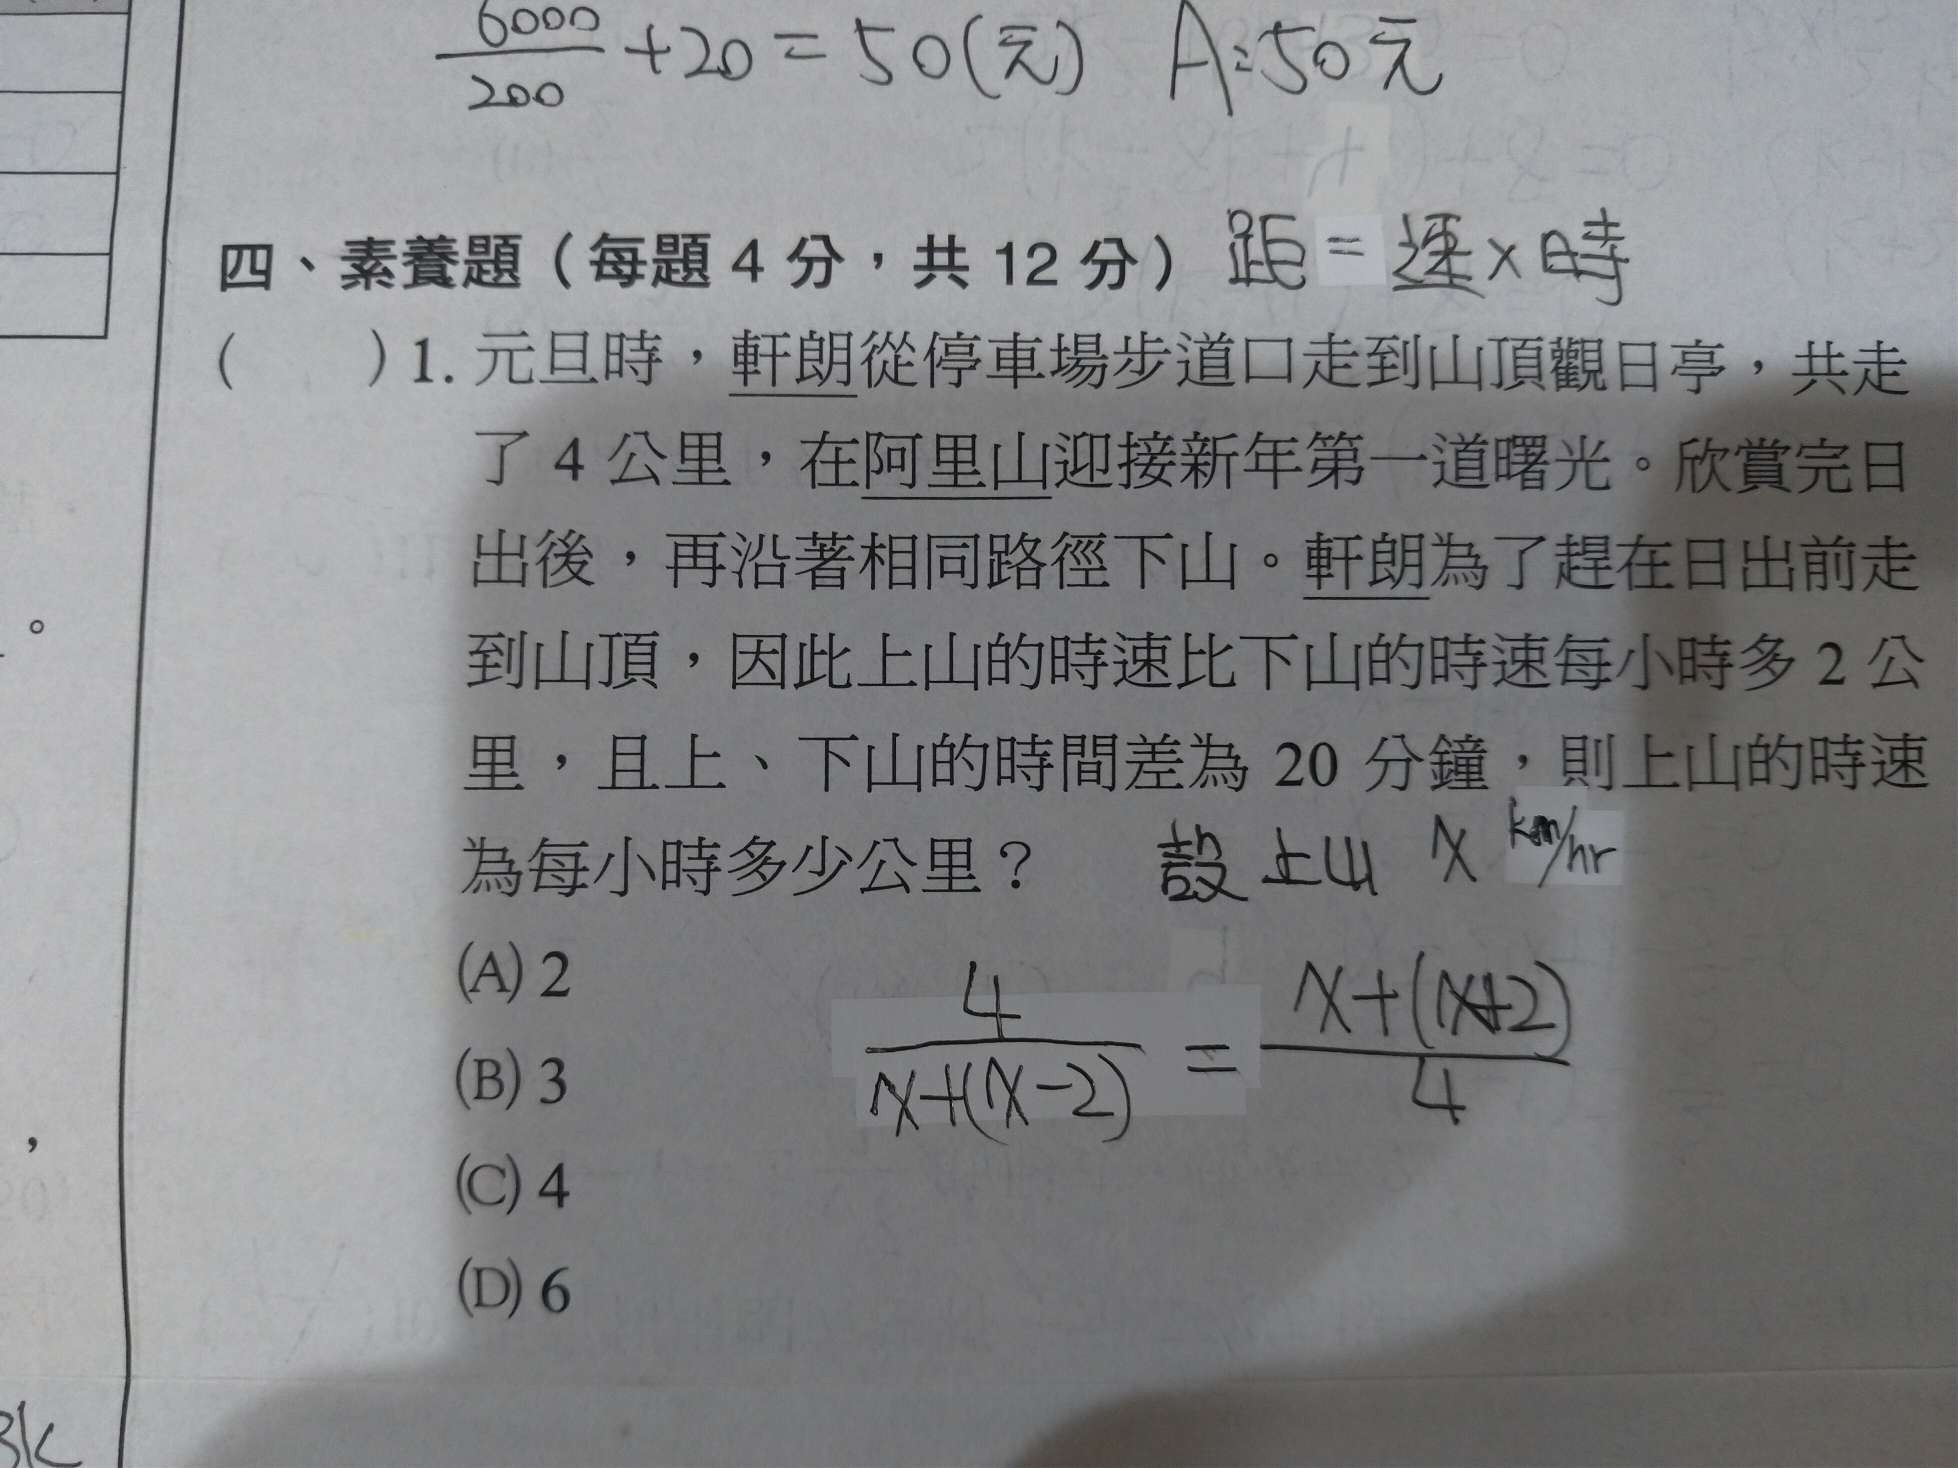 6000/200 +20=50(元) A:50元
四、素養題（每題 4 分，共 12 分） 距=速×時
( )1. 元旦時，軒朗從停車場步道口走到山頂觀日亭，共走
了 4 公里，在阿里山迎接新年第一道曙光。欣賞完日
出後，再沿著相同路徑下山。軒朗為了趕在日出前走
到山頂，因此上山的時速比下山的時速每小時多 2 公
里，且上、下山的時間差為 20 分鐘，則上山的時速
為每小時多少公里？ 設上山 x km/hr
(A) 2
4/x+(x-2) = x+(x+2)/4
(B) 3
(C) 4
(D) 6
。
，